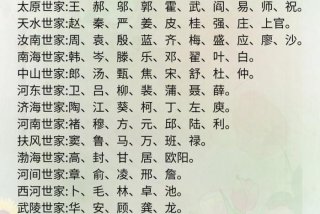 太原世家:王、郝、邬、郭、霍、武、阎、易、师、祝。
天水世家:赵、秦、严、姜、皮、桂、强、庄、上官。
汝南世家:周、袁、殷、蓝、齐、梅、盛、应、廖、沙。
南海世家:韩、岑、滕、乐、邓、翟、叶、白。
中山世家:郎、汤、甄、焦、宋、舒、杜、仲。
河东世家:卫、吕、柳、裴、蒲、聂、薛。
济海世家:陶、江、葵、柯、丁、左、庾。
河南世家:褚、穆、方、元、邱、陆、利。
扶风世家:窦、鲁、马、万、班、禄。
渤海世家:高、封、甘、居、欧阳。
河间世家:章、俞、凌、邢、詹。
西河世家:卜、毛、林、卓、池。
武陵世家:华、安、顾、龚、龙。